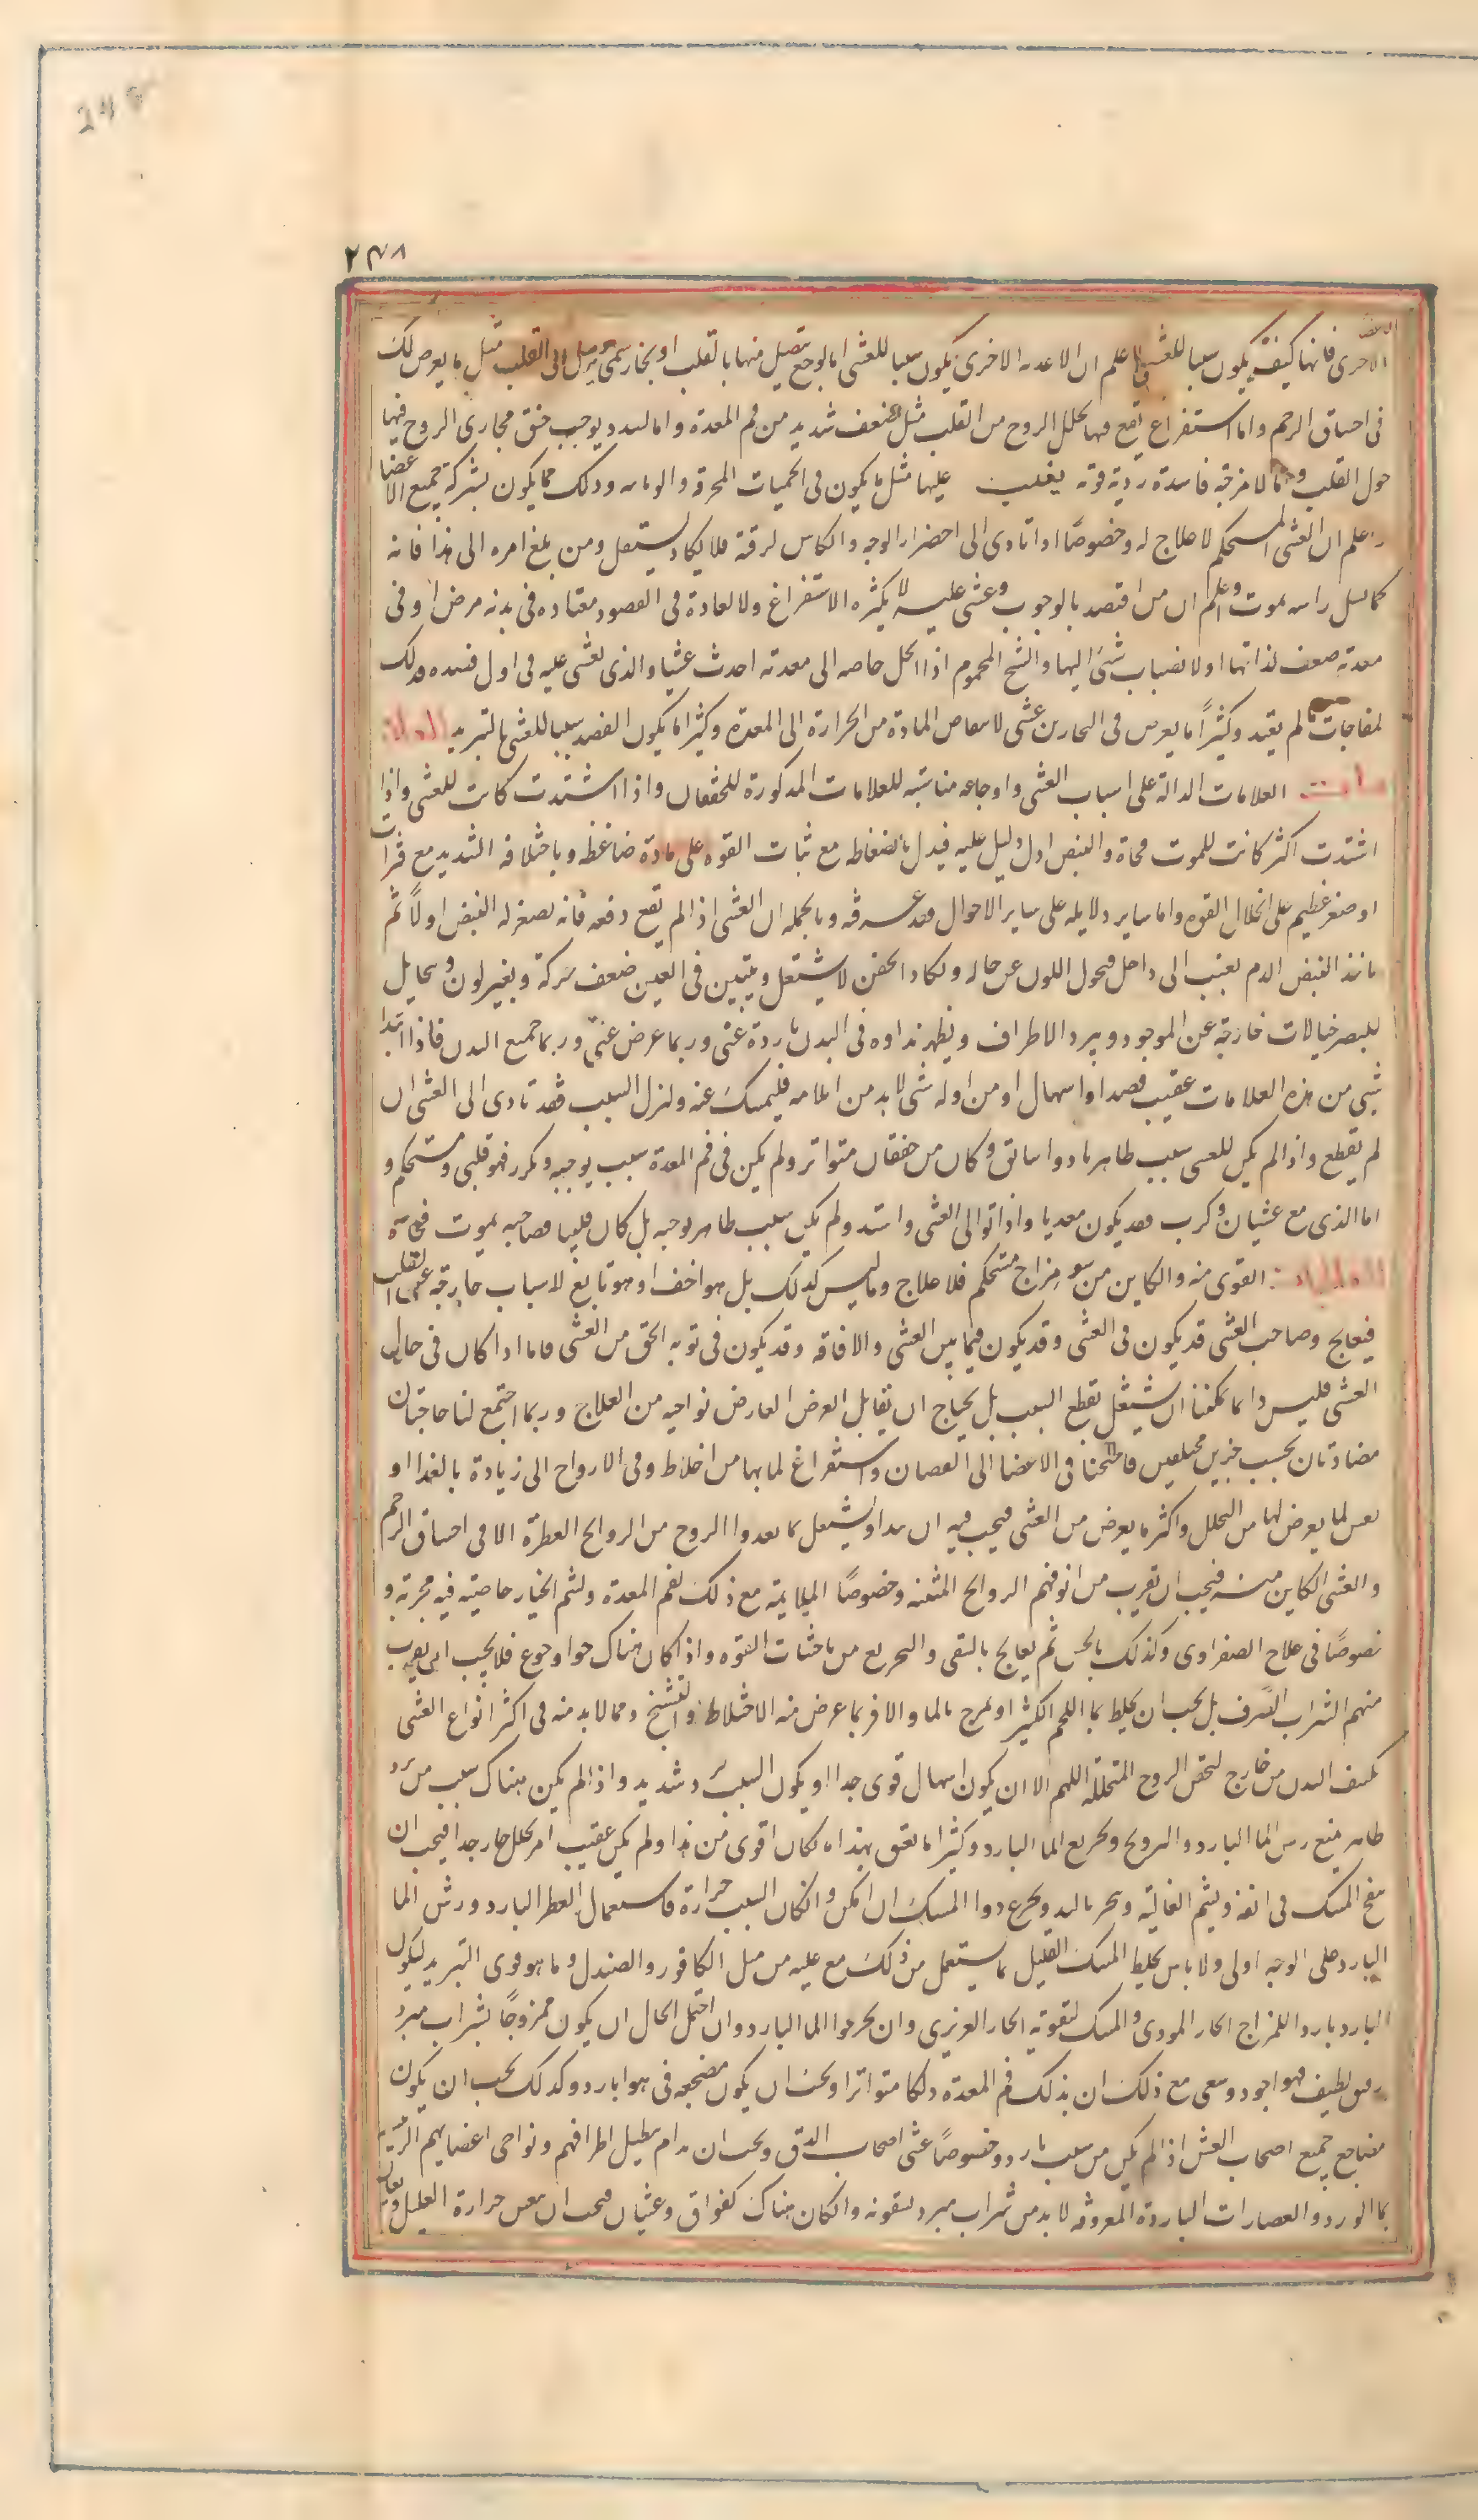 248
۲۴۸
الاعضا
الاخرى فانها كيف يكون سببا للغشى فاعلم ان الاعضا الاخرى يكون سببا للغشى اما لوجع يتصل منها بالقلب او بخار سمى يرسل الى القلب مثل ما يعرض لك
فى اختناق الرحم واما استفراغ يقع فيها يحلل الروح من القلب مثل ضعف شديد من فم المعدة واما لسدد يوجب خنق مجارى الروح فيما
حول القلب واما لامزجة فاسدة ردية قوية يغلب عليها مثل ما يكون فى الحميات المحرقة والوبايية وذلك مما يكون بشركة جميع الاعضا
واعلم ان الغشى المستحكم لا علاج له وخصوصًا اذا تادى الى اخضرار الوجه وانتكاس لرقبة فلا يكاد يستقل ومن بلغ امره الى هذا فانه
كما يسل راسه يموت واعلم ان من افتصد بالوجوب وغشى عليه لا بكثره الاستفراغ ولا لعادة فى الفصود معتاده فى بدنه مرض او فى
معدته ضعف لذاتها او لانصباب شئ اليها والشيخ المحموم اذا انحل خامه الى معدته احدث غشيا والذى يغشى عليه فى اول فصده فذلك
لمفاجات ما لم يعتد وكثيرًا ما يعرض فى البحارين غشى لانتقاض المادة من الحرارة الى المعدة وكثيرا ما يكون الفصد سببا للغشى بالتبريد العلا
مات العلامات الدالة على اسباب الغشى واوجاعه مناسبه للعلامات المذكورة للخفقان واذا اشتدت كانت للغشى واذا
اشتدت اكثر كانت للموت فجاة والنبض ادل دليل عليه فيدل بانضغاطه مع ثبات القوه على مادة ضاغطه وباختلافه الشديد مع فترات
او صغر عظيم على انحلال القوه واما ساير دلايله على ساير الاحوال فقد عرفته وبالجمله ان الغشى اذا لم يقع دفعه فانه يصغر له النبض اولًا ثم
ياخذ النبض الدم يغيب الى داخل فيحول اللون عن حاله ويكاد الجفن لا يستقل ويتبين فى العين ضعف حركة ويغير لون ويخايل
للبصر خيالات خارجة عن الموجود ويبرد الاطراف ويظهر نداوه فى البدن باردة غشى وربما عرض غشى وربما جميع البدن فاذا ابتدا
شيى من هذه العلامات عقيب فصد او اسهال او مزاوله شئ لا بد من ايلامه فليمسك عنه وليزل السبب فقد تادى الى الغشى ان
لم يقطع واذا لم يكن للغشى سبب ظاهر بادوا سابق وكان من خفقان متواتر ولم يكن فى فم المعدة سبب يوجبه ويكرر فهو قلبى ومستحكم و
اما الذى مع غشيان وكرب فقد يكون معديا واذا توالى الغشى واشتد ولم يكن سبب ظاهر يوجبه بل كان قلبيا فصاحبه يموت فجآة
المعالجات القوى منه والكاين من سو مزاج مستحكم فلا علاج وما ليس كذلك بل هو اخف او هو تابع لاسباب خارجة عن القلب
فيعالج وصاحب الغشى قد يكون فى الغشى وقد يكون فيما بين الغشى والافاقه وقد يكون فى نوبه اخق من الغشى فاما اذا كان فى حال
الغشى فليس دايما يمكننا ان نشتغل بقطع السبب بل يحتاج ان يقابل العرض العارض نواحيه من العلاج وربما اجتمع لنا حاجتان
متضادتان بحسب جزين مختلفين فاحتجنا فى الاعضا الى النقصان واستفراغ لما بها من اخلاط وفى الارواح الى زيادة بالغذا او
نعش لما يعرض لها من التحلل واكثر ما يعرض من الغشى فيجب فيه ان يبدا ويشتعل بما يغدو االروح من الروايح العطرة الا فى اختناق الرحم
والغشى الكاين منه فيجب ان يقرب من انوفهم الروايح المنتنه وخصوصًا الملايمة مع ذلك لفم المعدة ولشم الخيار خاصيته فيه مجربة و
خصوصًا فى علاج الصفراوى وكذلك بالخس ثم يعالج بالسقى والتجريع من ناعشات القوه واذا كان هناك خوا وجوع فلا يجب ان يقرب
منهم الشراب الصرف بل يجب ان يخلط بما اللحم الكثير او يمزج بالما والا فربما عرض منه الاختلاط والتشنج ومما لا بد منه فى اكثر انواع الغشى
تكثيف البدن من خارج لتحقن الروح المتحلله اللهم الا ان يكون اسهال قوى جدا او يكون السبب برد شديد واذا لم يكن هناك سبب من برد
ظاهر يمنع رش الما البارد والترويح وتجريع الما البارد وكثيرا ما يعق بهذا ما كان اقوى من هذا ولم يكن عقيب امر محلل حار جدا فيجب ان
ينفخ المسك فى انفه ويشم الغالية ويبخر بالند ويجرع دوا المسك ان امكن وان كان السبب حرارة فاستعمال العطر البارد ورش الما
البارد على الوجه اولى ولا باس بخلط المسك القليل بما يستعمل من ذلك مع غلبه من مثل الكافور والصندل وما هو قوى التبريد ليكون
البارد باردا للمزاج الحار الموذى والمسك لتقوته الحار الغريزى وان يجرعوا الما البارد وان احتمل الحال ان يكون ممزوجًا بشراب مبرد
رقيق لطيف فهو اجود وينبغى مع ذلك ان يدلك فم المعدة دلكا متواترا ويجب ان يكون مضجعه فى هوا بارد وكذلك يجب ان يكون
مضاجع جميع اصحاب الغشى اذا لم يكن من سبب بارد وخصوصًا غشى اصحاب الدق ويجب ان يدام تطليل اطرافهم ونواحى اعضايهم الرئيسة
بما الورد والعصارات الباردة المعروفه لا بد من شراب مبرد لسقونه وان كان هناك كفواق وغثيان فيجب ان ينعش حرارة العليل ويعان